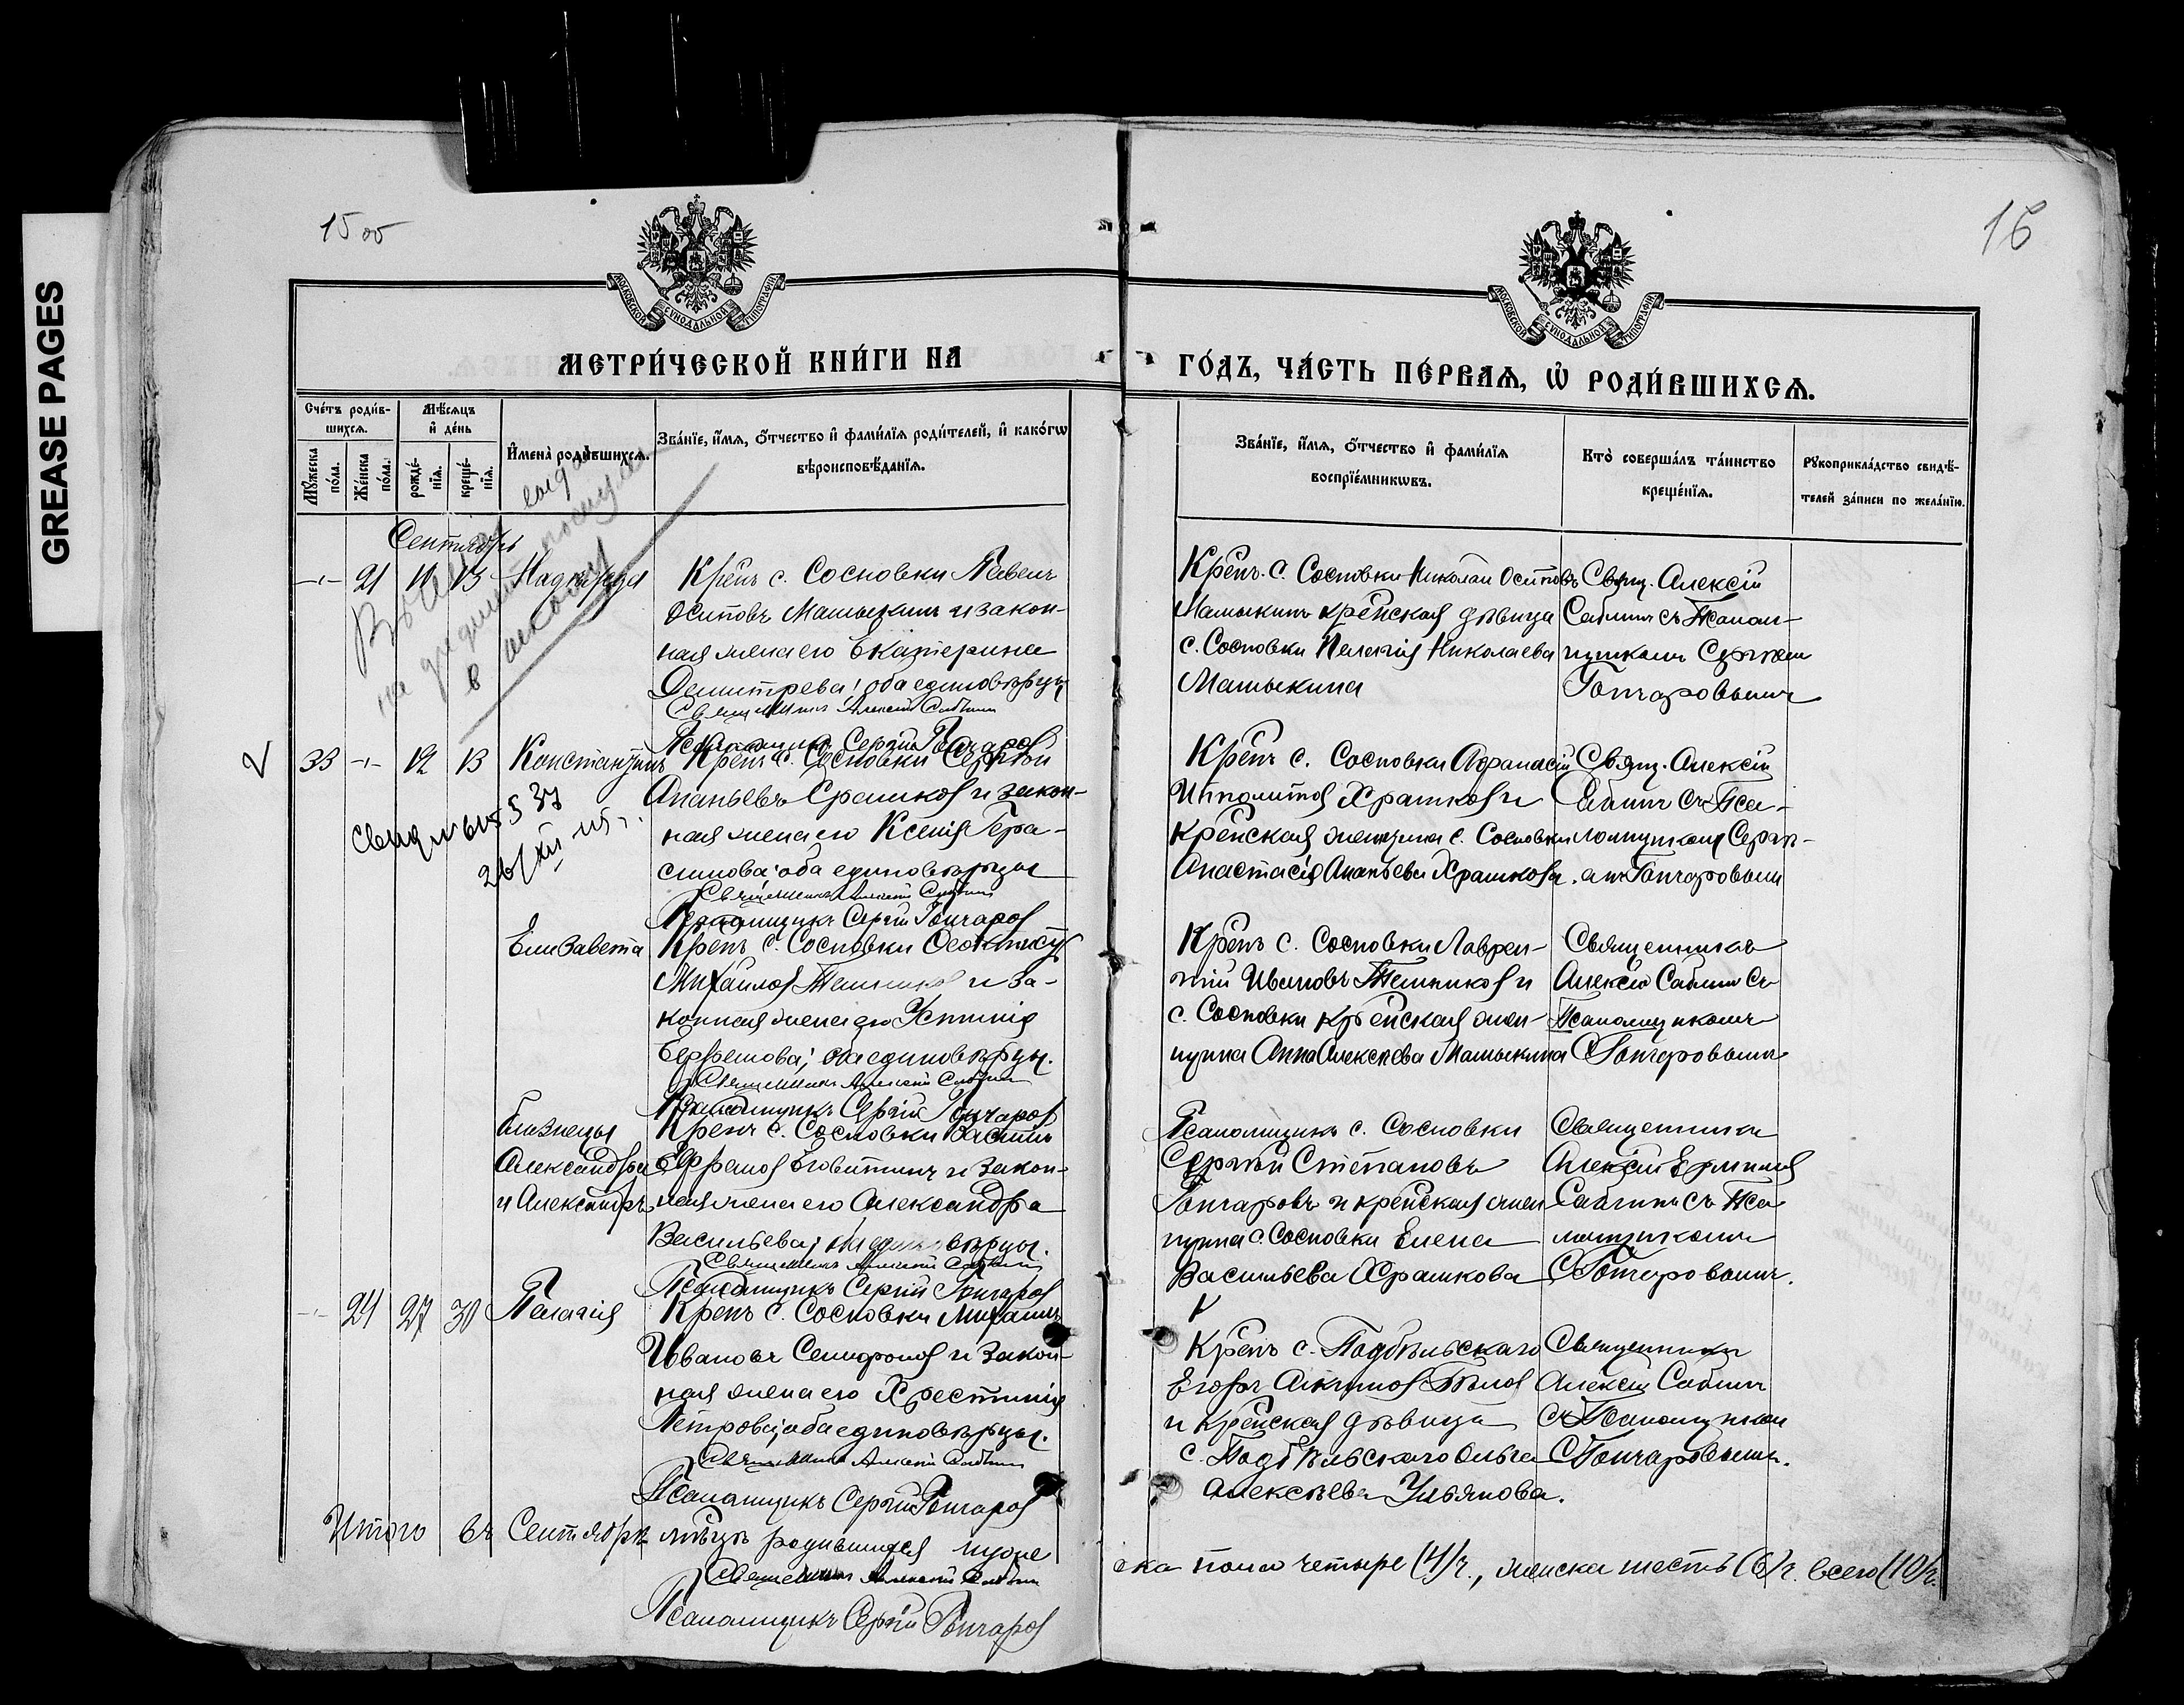 GREASE PAGES
15 об
16
МОСКОВСКОЙ СѴНОДАЛЬНОЙ ТИПОГРАФІИ
МОСКОВСКОЙ СѴНОДАЛЬНОЙ ТИПОГРАФІИ
МЕТРИ́ЧЕСКОЙ КНИ́ГИ НА
ГО́ДЪ, ЧА́СТЬ ПЕ́РВАѦ, Ѡ҆ РОДИ́ВШИХСѦ.
Сче́тъ роди́в-
шихсѧ.
Мꙋ́жеска
по́ла.
Же́нска
по́ла.
Мѣ́сѧцъ
и҆ де́нь
рожде́-
нїѧ.
креще́-
нїѧ.
И҆мена̀ роди́вшихсѧ.
Зва́нїе, и҆́мѧ, ѻ҆́тчество и҆ фами́лїѧ роди́телей, и҆ како́гѡ
вѣроисповѣ́данїѧ.
Зва́нїе, и҆́мѧ, ѻ҆́тчество и҆ фами́лїѧ
воспрїе́мникѡвъ.
Кто̀ соверша́лъ та́инство
креще́нїѧ.
Рꙋкоприкла́дство свидѣ́-
телей за́писи по жела́нїю.
Сентябрь
21 11 13 Надежда
Крѣнъ с. Сосновки Павелъ
Осиповъ Мамыкинъ и закон-
ная жена его Екатерина
Димитрева; оба единовѣрцы
Священникъ Алексій Саблин
Псаломщикъ Сергій Гончаров
Крѣнъ с. Сосновки Николай Осиповъ
Мамыкинъ крѣнская дѣвица
с. Сосновки Пелагія Николаева
Мамыкина
Свящ. Алексій
Саблинъ съ Псалом-
щикомъ Сергѣем
Гончаровымъ
в школу
33 12 13 Константинъ
Крѣнъ с. Сосновки Сергѣй
Ананьевъ Храмков и закон-
ная жена его Ксенія Гера-
симова; оба единовѣрцы
Священникъ Алексій Саблин
Псаломщикъ Сергій Гончаров
Крѣнъ с. Сосновки Афанасій
Ипполитов Храмков и
крѣнская женщина с. Сосновки
Анастасія Ананьева Храмкова.
Свящ. Алексій
Саблинъ съ Пса-
ломщиком Сергѣ-
емъ Гончаровым
Елизавета
Крѣнъ с. Сосновки Феоктист
Михайлов Темников и за-
конная жена его Устинія
Ефремова; оба единовѣрцы.
Священникъ Алексій Саблин
Псаломщикъ Сергій Гончаров
Крѣнъ с. Сосновки Лаврен-
тій Ивановъ Темников и
с. Сосновки крѣнская жен-
щина Анна Алексѣева Мамыкина
Священникъ
Алексій Саблин съ
Псаломщикомъ
С Гончаровымъ
близнецы
Александра
и Александръ
Крѣнъ с. Сосновки Василій
Ефремов и закон-
ная жена его Александра
Васильева; оба единовѣрцы.
Священникъ Алексій Саблин
Псаломщикъ Сергій Гончаров
Псаломщикъ с. Сосновки
Сергѣй Степановъ
Гончаровъ и крѣнская жен
щина с. Сосновки Елена
Васильева Храмкова
Священникъ
Саблинъ съ Пса
ломщикомъ
С Гончаровымъ.
24 27 30 Пелагія
Крѣнъ с. Сосновки Михаилъ
Ивановъ и закон-
ная жена его Христинія
Петрова; оба единовѣрцы.
Священникъ Алексій Саблин
Псаломщикъ Сергій Гончаров
Крѣнъ с. Подбѣльскаго
Егоръ Акимов Бѣлов
и крѣнская дѣвица
с. Подбѣльскаго Ольга
Алексѣева Ульянова.
Священникъ
Алексій Саблинъ
съ Псаломщиком
С Гончаровымъ.
Итого въ Сентябрѣ мѣсцѣ родившихся муже
ска пола четыре (4) ч., женска шесть (6) ч. всего (10) ч.
Священникъ Алексій Саблин
Псаломщикъ Сергій Гончаров